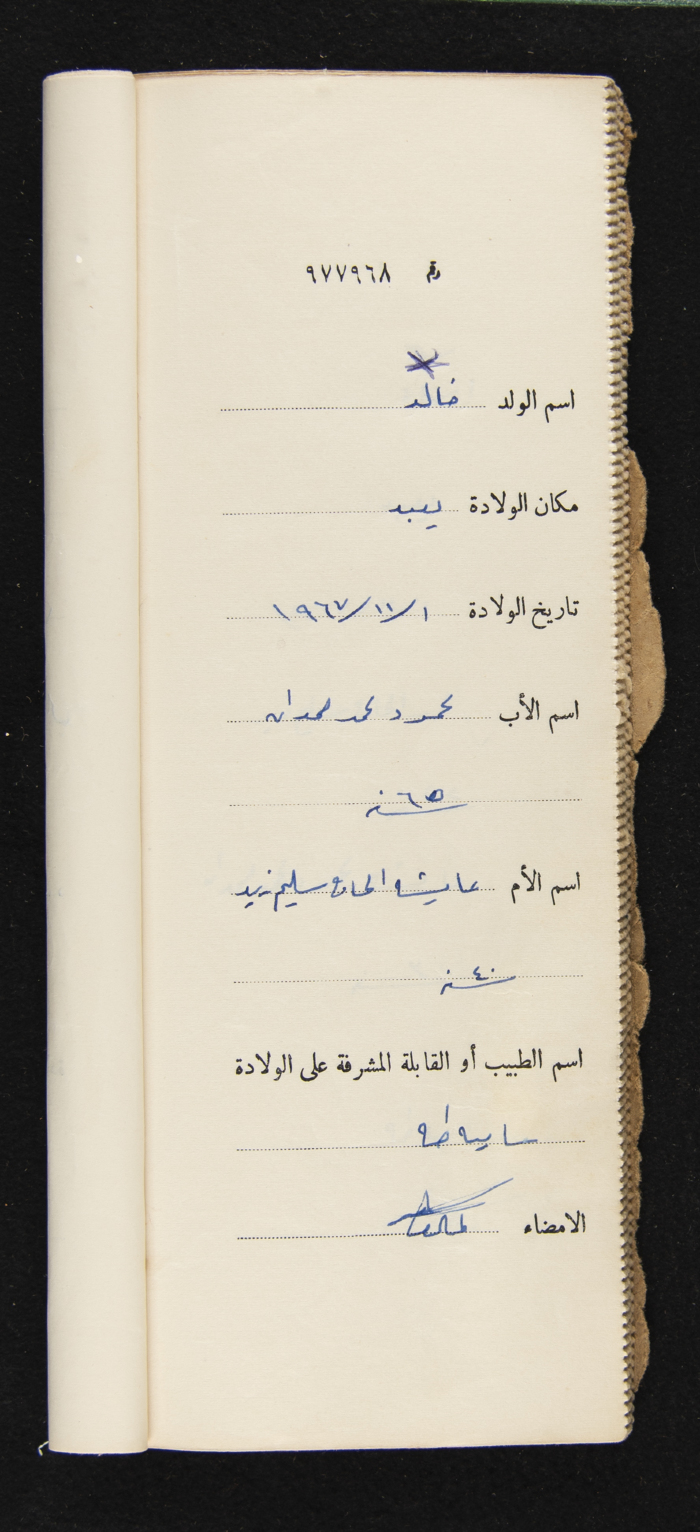 رقم ٩٧٧٩٦٨
اسم الولد خالد
مكان الولادة يعبد
تاريخ الولادة ١/١١/١٩٦٧
اسم الأب محمود محمد حمدان
٦٥ سنه
اسم الأم عايشه الحاج سليم زيد
٤٠ سنه
اسم الطبيب أو القابلة المشرفة على الولادة
ساميه طه
الامضاء